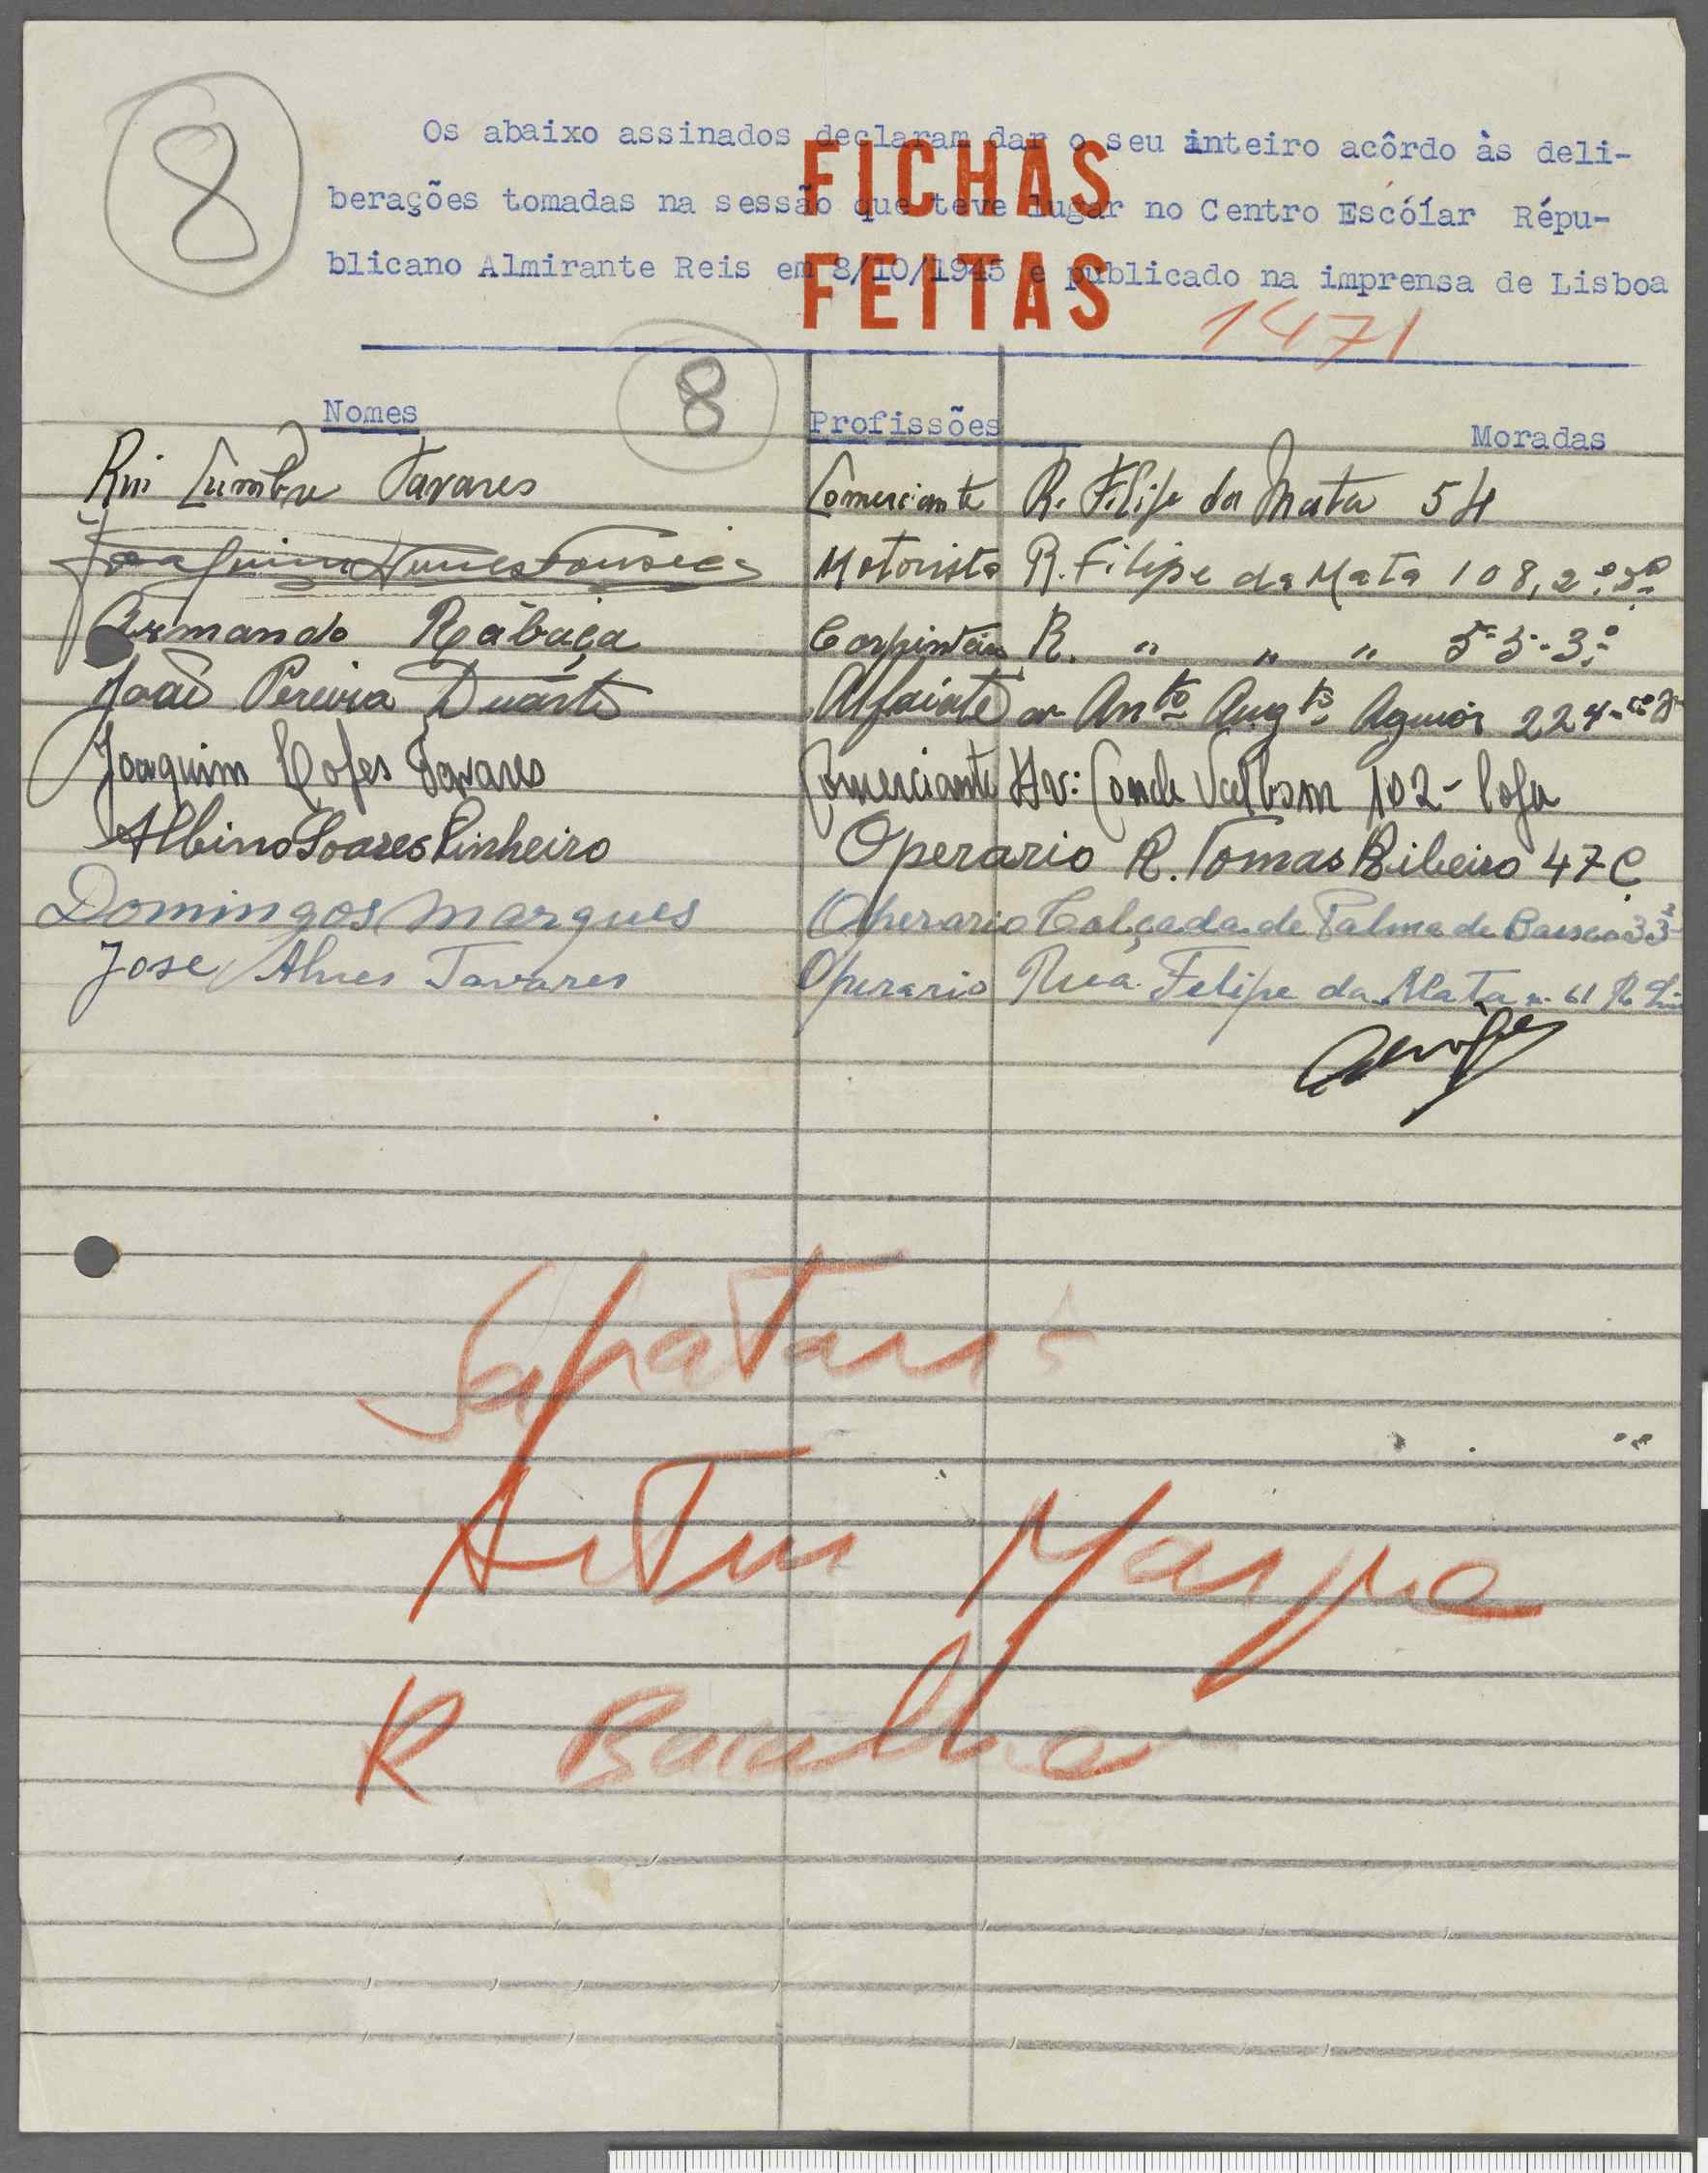 8
Os abaixo assinados declaram dar o seu inteiro acôrdo às deli-
berações tomadas na sessão que teve lugar no Centro Escólar Répu-
blicano Almirante Reis em 8/10/1945 e publicado na imprensa de Lisboa
FICHAS
FEITAS
1471
8
Nomes Profissões Moradas
Rui Cumbre Tavares Comerciante R. Filipe da Mata 54
Joaquim Nunes Fonseca Motorista R. Filipe da Mata 108, 2º
Armando Rábaça Carpinteiro R. " " " 5-3-3º
João Pereira Duarte Alfaiate Antº Augtº Aguiar 224
Joaquim Lopes Tavares Comerciante Av: Conde Valbom 102- loja
Albino Soares Pinheiro Operario R. Tomas Ribeiro 47 C
Domingos Marques Operario Calçada de Palma de Baixo 33
Jose Alves Tavares Operario Rua Felipe da Mata n. 61
Artur
R